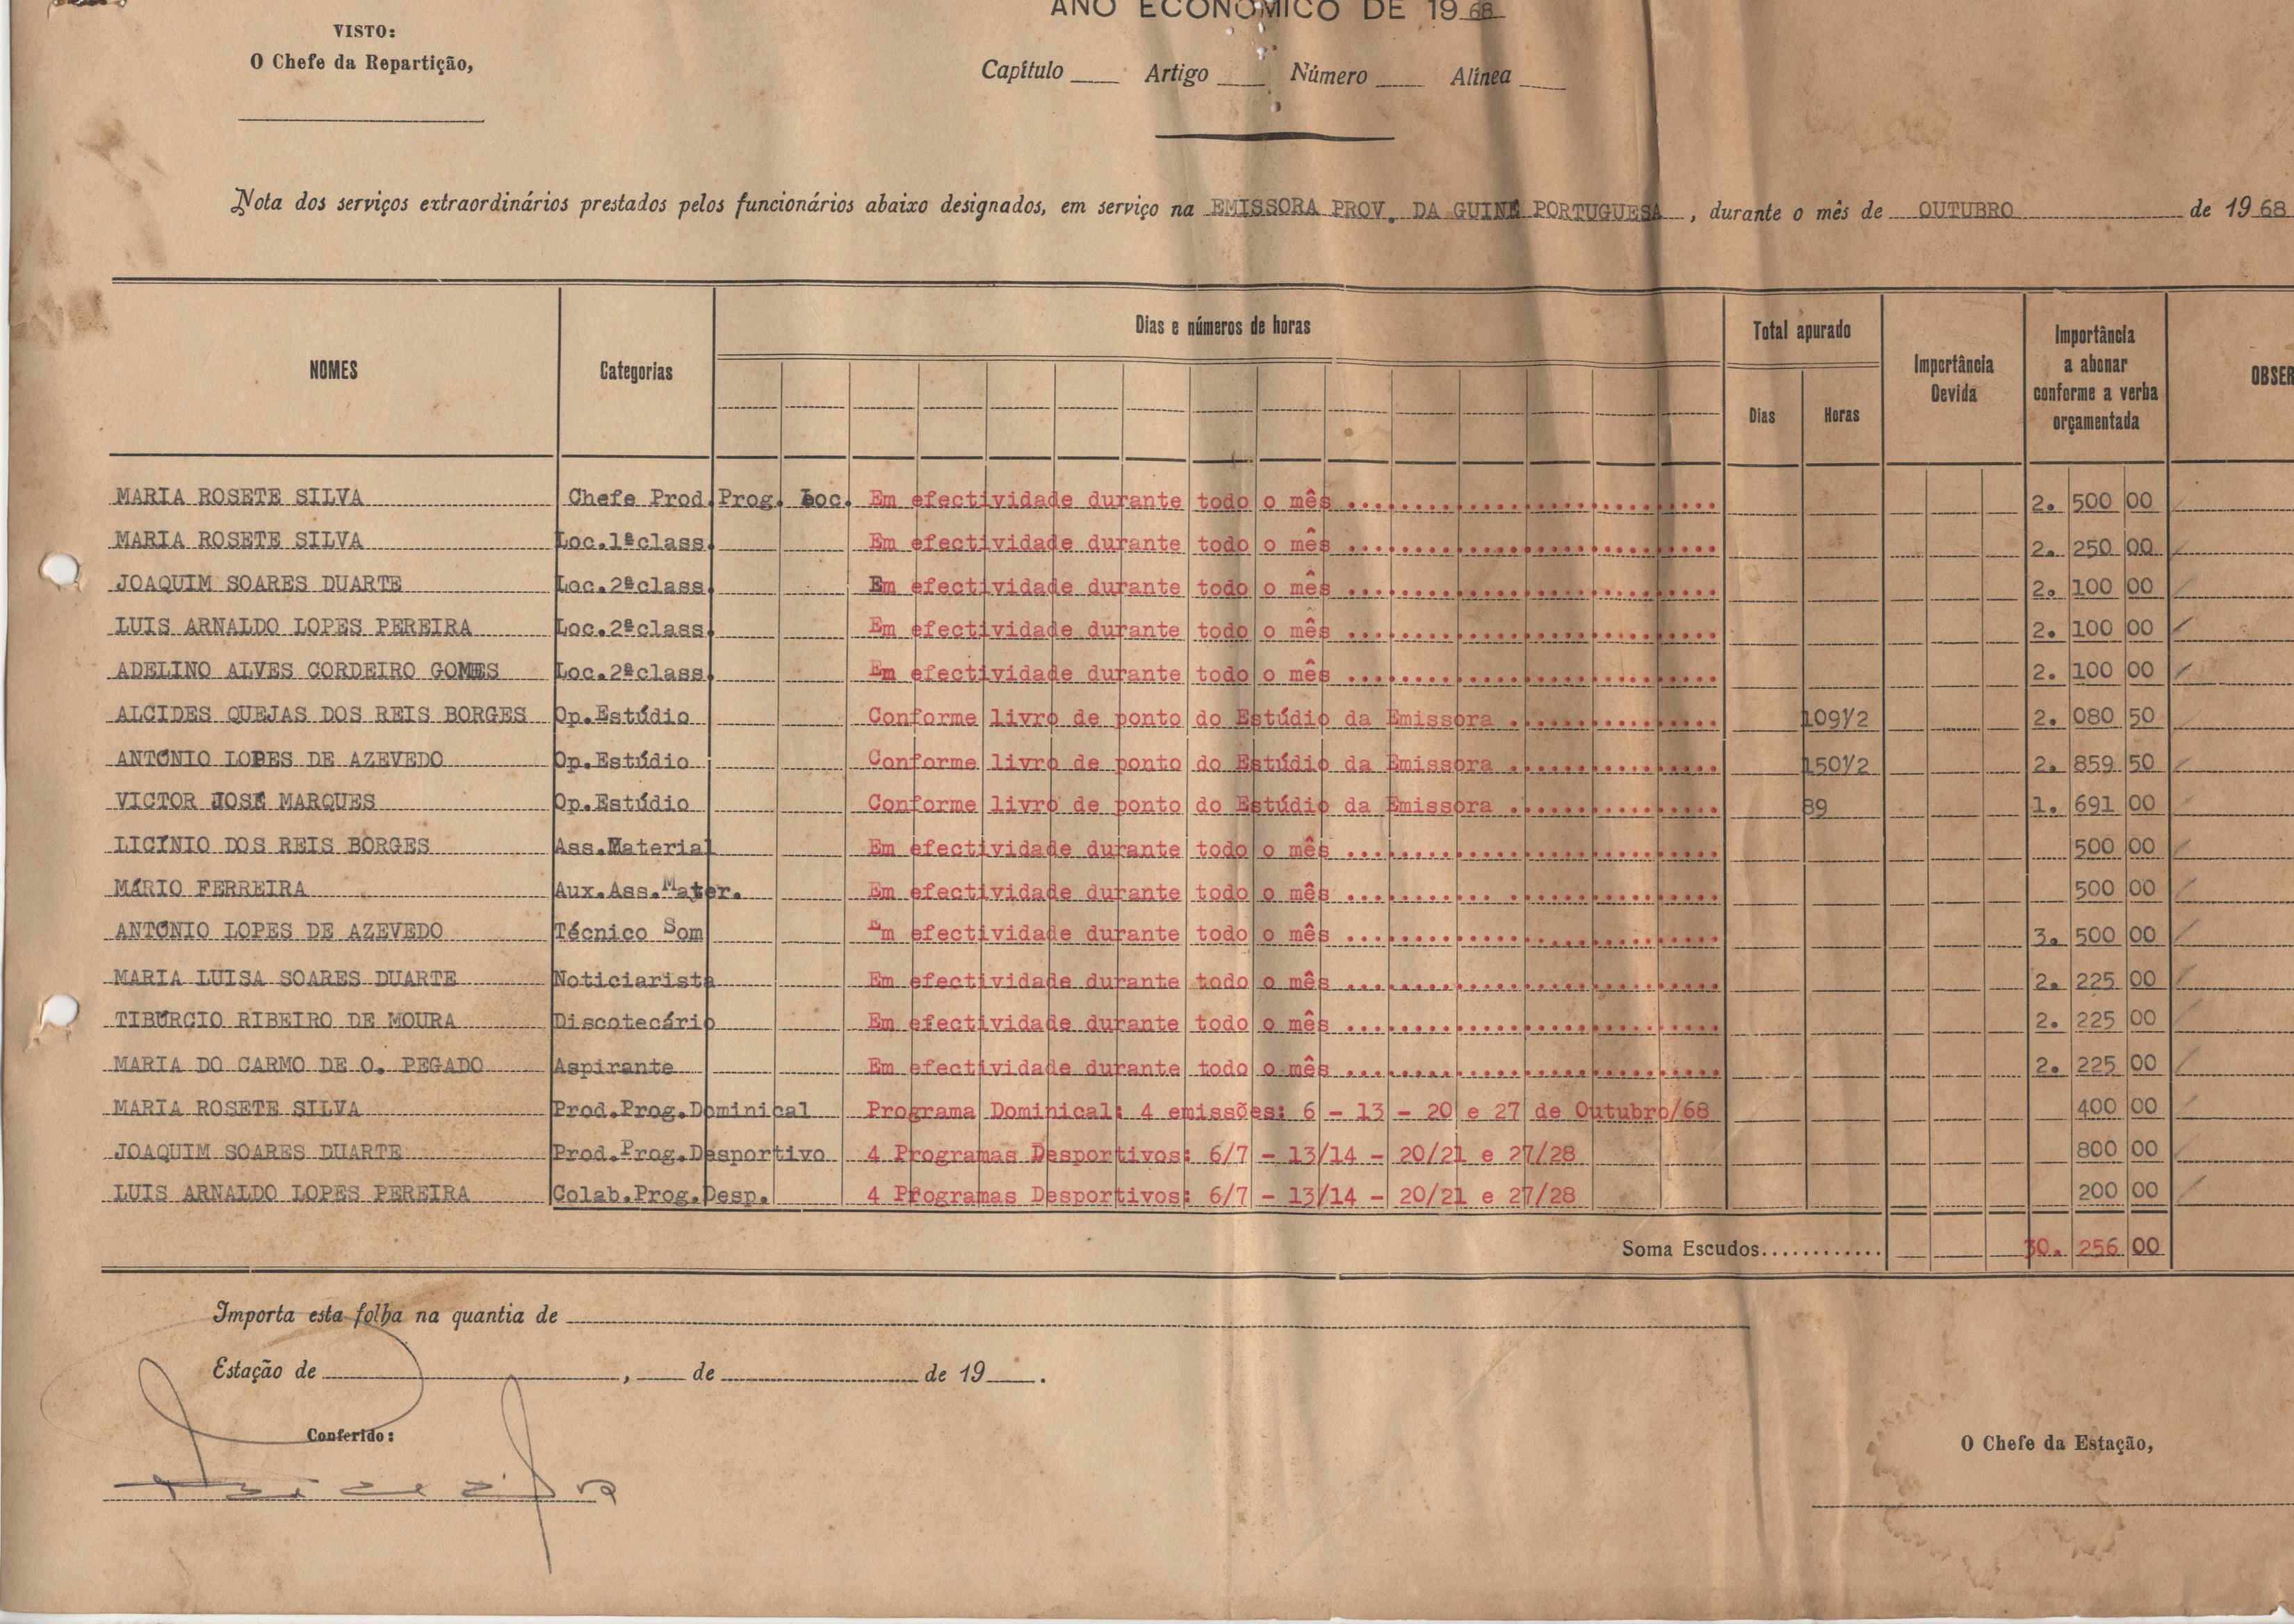 ANO ECONÓMICO DE 1968
VISTO:
O Chefe da Repartição,
Capítulo ____ Artigo ____ Número ____ Alínea ____
Nota dos serviços extraordinários prestados pelos funcionários abaixo designados, em serviço na EMISSORA PROV. DA GUINÉ PORTUGUESA, durante o mês de OUTUBRO de 1968
NOMES Categorias Dias e números de horas Total apurado Dias Horas Importância Devida Importância a abonar conforme a verba orçamentada OBSER
MARIA ROSETE SILVA Chefe Prod.Prog. Loc. Em efectividade durante todo o mês ........................... 2. 500 00
MARIA ROSETE SILVA Loc.1ªclass. Em efectividade durante todo o mês ........................... 2. 250 00
JOAQUIM SOARES DUARTE Loc.2ªclass. Em efectividade durante todo o mês ........................... 2. 100 00
LUIS ARNALDO LOPES PEREIRA Loc.2ªclass. Em efectividade durante todo o mês ........................... 2. 100 00
ADELINO ALVES CORDEIRO GOMES Loc.2ªclass. Em efectividade durante todo o mês ........................... 2. 100 00
ALCIDES QUEJAS DOS REIS BORGES Op.Estúdio Conforme livro de ponto do Estúdio da Emissora ............... 109½ 2. 080 50
ANTÓNIO LOPES DE AZEVEDO Op.Estúdio Conforme livro de ponto do Estúdio da Emissora ............... 150½ 2. 859 50
VICTOR JOSÉ MARQUES Op.Estúdio Conforme livro de ponto do Estúdio da Emissora ............... 89 1. 691 00
LICÍNIO DOS REIS BORGES Ass.Material Em efectividade durante todo o mês ........................... 500 00
MÁRIO FERREIRA Aux.Ass.Mater. Em efectividade durante todo o mês ........................... 500 00
ANTÓNIO LOPES DE AZEVEDO Técnico Som Em efectividade durante todo o mês ........................... 3. 500 00
MARIA LUISA SOARES DUARTE Noticiarista Em efectividade durante todo o mês ........................... 2. 225 00
TIBÚRCIO RIBEIRO DE MOURA Discotecário Em efectividade durante todo o mês ........................... 2. 225 00
MARIA DO CARMO DE O. PEGADO Aspirante Em efectividade durante todo o mês ........................... 2. 225 00
MARIA ROSETE SILVA Prod.Prog.Dominical Programa Dominical: 4 emissões: 6 - 13 - 20 e 27 de Outubro/68 400 00
JOAQUIM SOARES DUARTE Prod.Prog.Desportivo 4 Programas Desportivos: 6/7 - 13/14 - 20/21 e 27/28 800 00
LUIS ARNALDO LOPES PEREIRA Colab.Prog.Desp. 4 Programas Desportivos: 6/7 - 13/14 - 20/21 e 27/28 200 00
Soma Escudos............ 30. 256 00
Importa esta folha na quantia de
Estação de ____, ____ de ____ de 19____.
Conferido:
O Chefe da Estação,